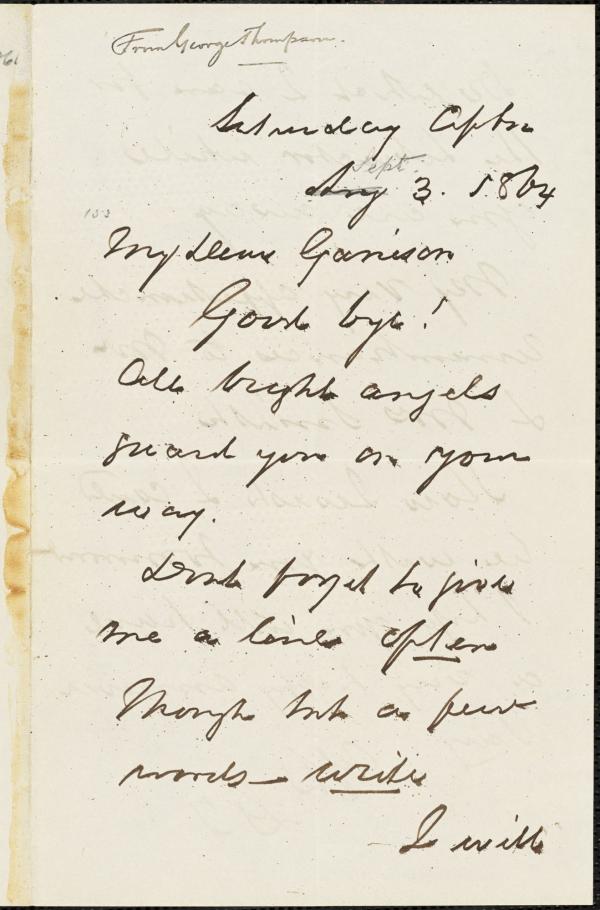 From George Thompson.
Saturday Aftn
Sept.
Aug 3. 1864
153
My dear Garrison
Good bye!
All bright angels
guard you on your
way.
Dont forget to give
me a line often
Though but a few
words — write
I will